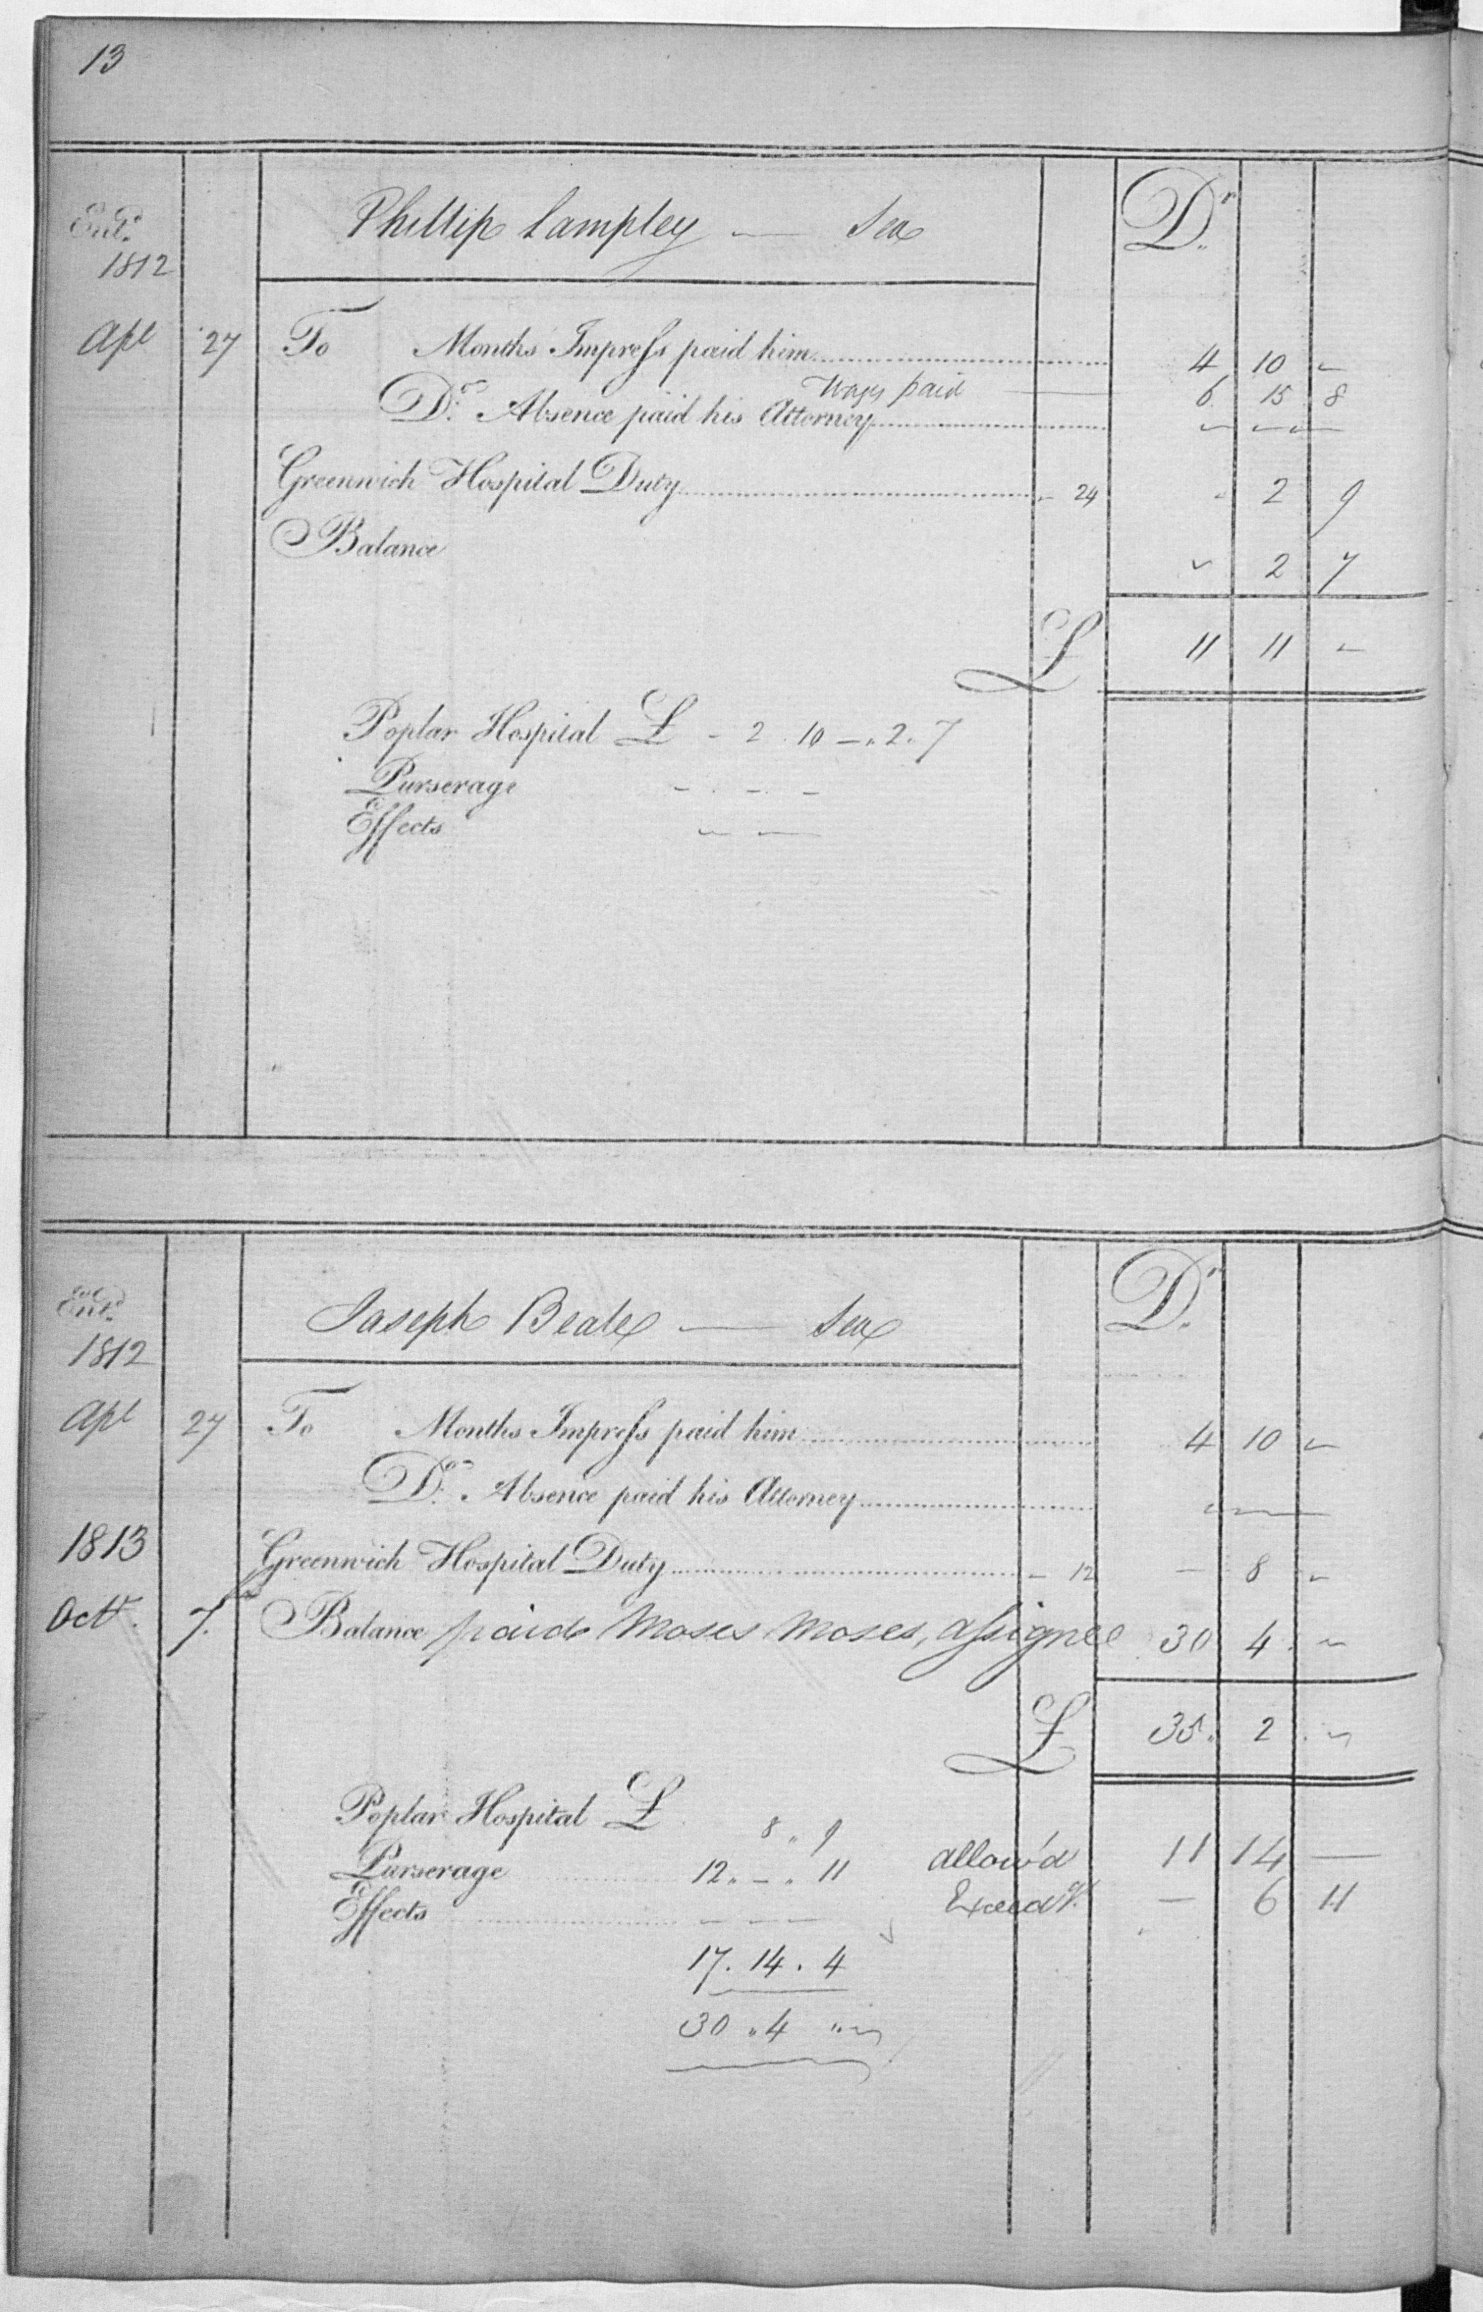 13
Ent.d
1812
Phillip Lampley — Sea
D.r
Apl 27 To Months Impress paid him 4 10 -
Wages paid — 6 15 8
D.o Absence paid his Attorney - - -
Greenwich Hospital Duty - 24 - 2 9
Balance - 2 7
£ 11 11 -
Poplar Hospital £ - 2 . 10 - „ 2 „ 7
Purserage - . - . -
Effects - -
Ent.d
1812
Joseph Beale — Sea
D.r
Apl 27 To Months Impress paid him 4 10 -
D.o Absence paid his Attorney - - -
1813
Greenwich Hospital Duty - 12 - 8 -
Oct.r 7. Balance paid Moses Moses, assignee 30 4 . -
£ 35 . 2 . -
Poplar Hospital £ 8 „ 9
Purserage 12 „ - „ 11 allow'd 11 14 —
Effects - - - Exceed.g - 6 11
17 . 14 . 4
30 „ 4 „ -